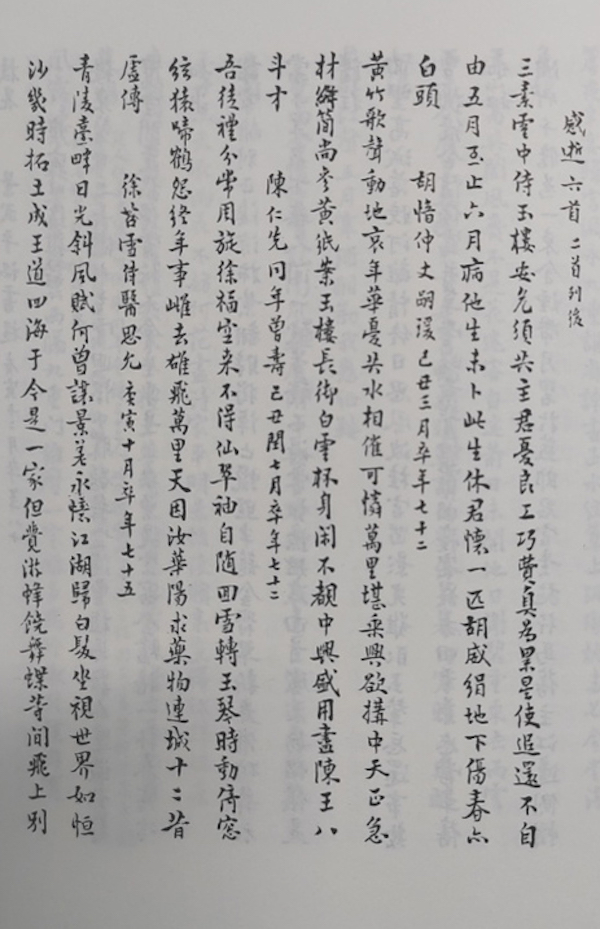 感逝六首 二首列後
三素雲中侍玉樓安危須共主君憂良工巧費真為累星使追還不自
由五月至止六月病他生未卜此生休君懷一匹胡威絹地下傷春亦
白頭 胡愔仲丈嗣瑗己丑三月卒年七十二
黃竹歌聲動地哀年華憂共水相催可憐萬里堪乘興欲構中天正急
材辭簡尚參黃紙案玉樓長御白雲杯身閑不覩中興盛用盡陳王八
斗才 陳仁先同年曾壽己丑閏七月卒年七十二
吾徒禮分常周旋徐福空來不得仙翠袖自隨回雪轉玉琴時動倚窓
絃猿啼鶴怨終年事雌去雄飛萬里天因汝華陽求藥物連城十二昔
虛傳 徐苕雪侍醫思允庚寅十月卒年七十五
青陵臺畔日光斜風賦何曾謀景差永憶江湖歸白髮坐視世界如恒
沙幾時拓土成王道四海于今是一家但覺游蜂饒舞蝶等閒飛上別